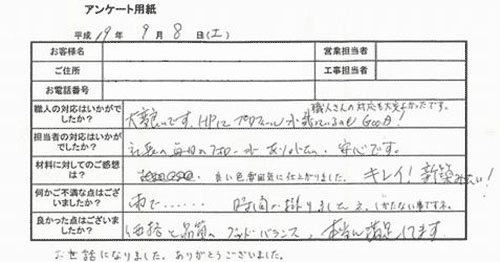 アンケート用紙
平成 19年 9月 8日(土)
お客様名
営業担当者
ご住所
工事担当者
お電話番号
職人の対応はいかがでしたか?
職人さんの対応も大変よかったです。
大変いいです。HPにプロフィールが載っているのもGOOD!
担当者の対応はいかがでしたか?
社長の毎日のフォローがありがたい。安心です。
材料に対してのご感想は?
良い色雰囲気に仕上がりました。キレイ!新築みたい!
何かご不満な点はございましたか?
雨で…… 時間が掛りましたネ。しかたない事ですネ。
良かった点はございましたか?
価格と品質のグッドバランス。本当に満足してます。
お世話になりました。ありがとうございました。